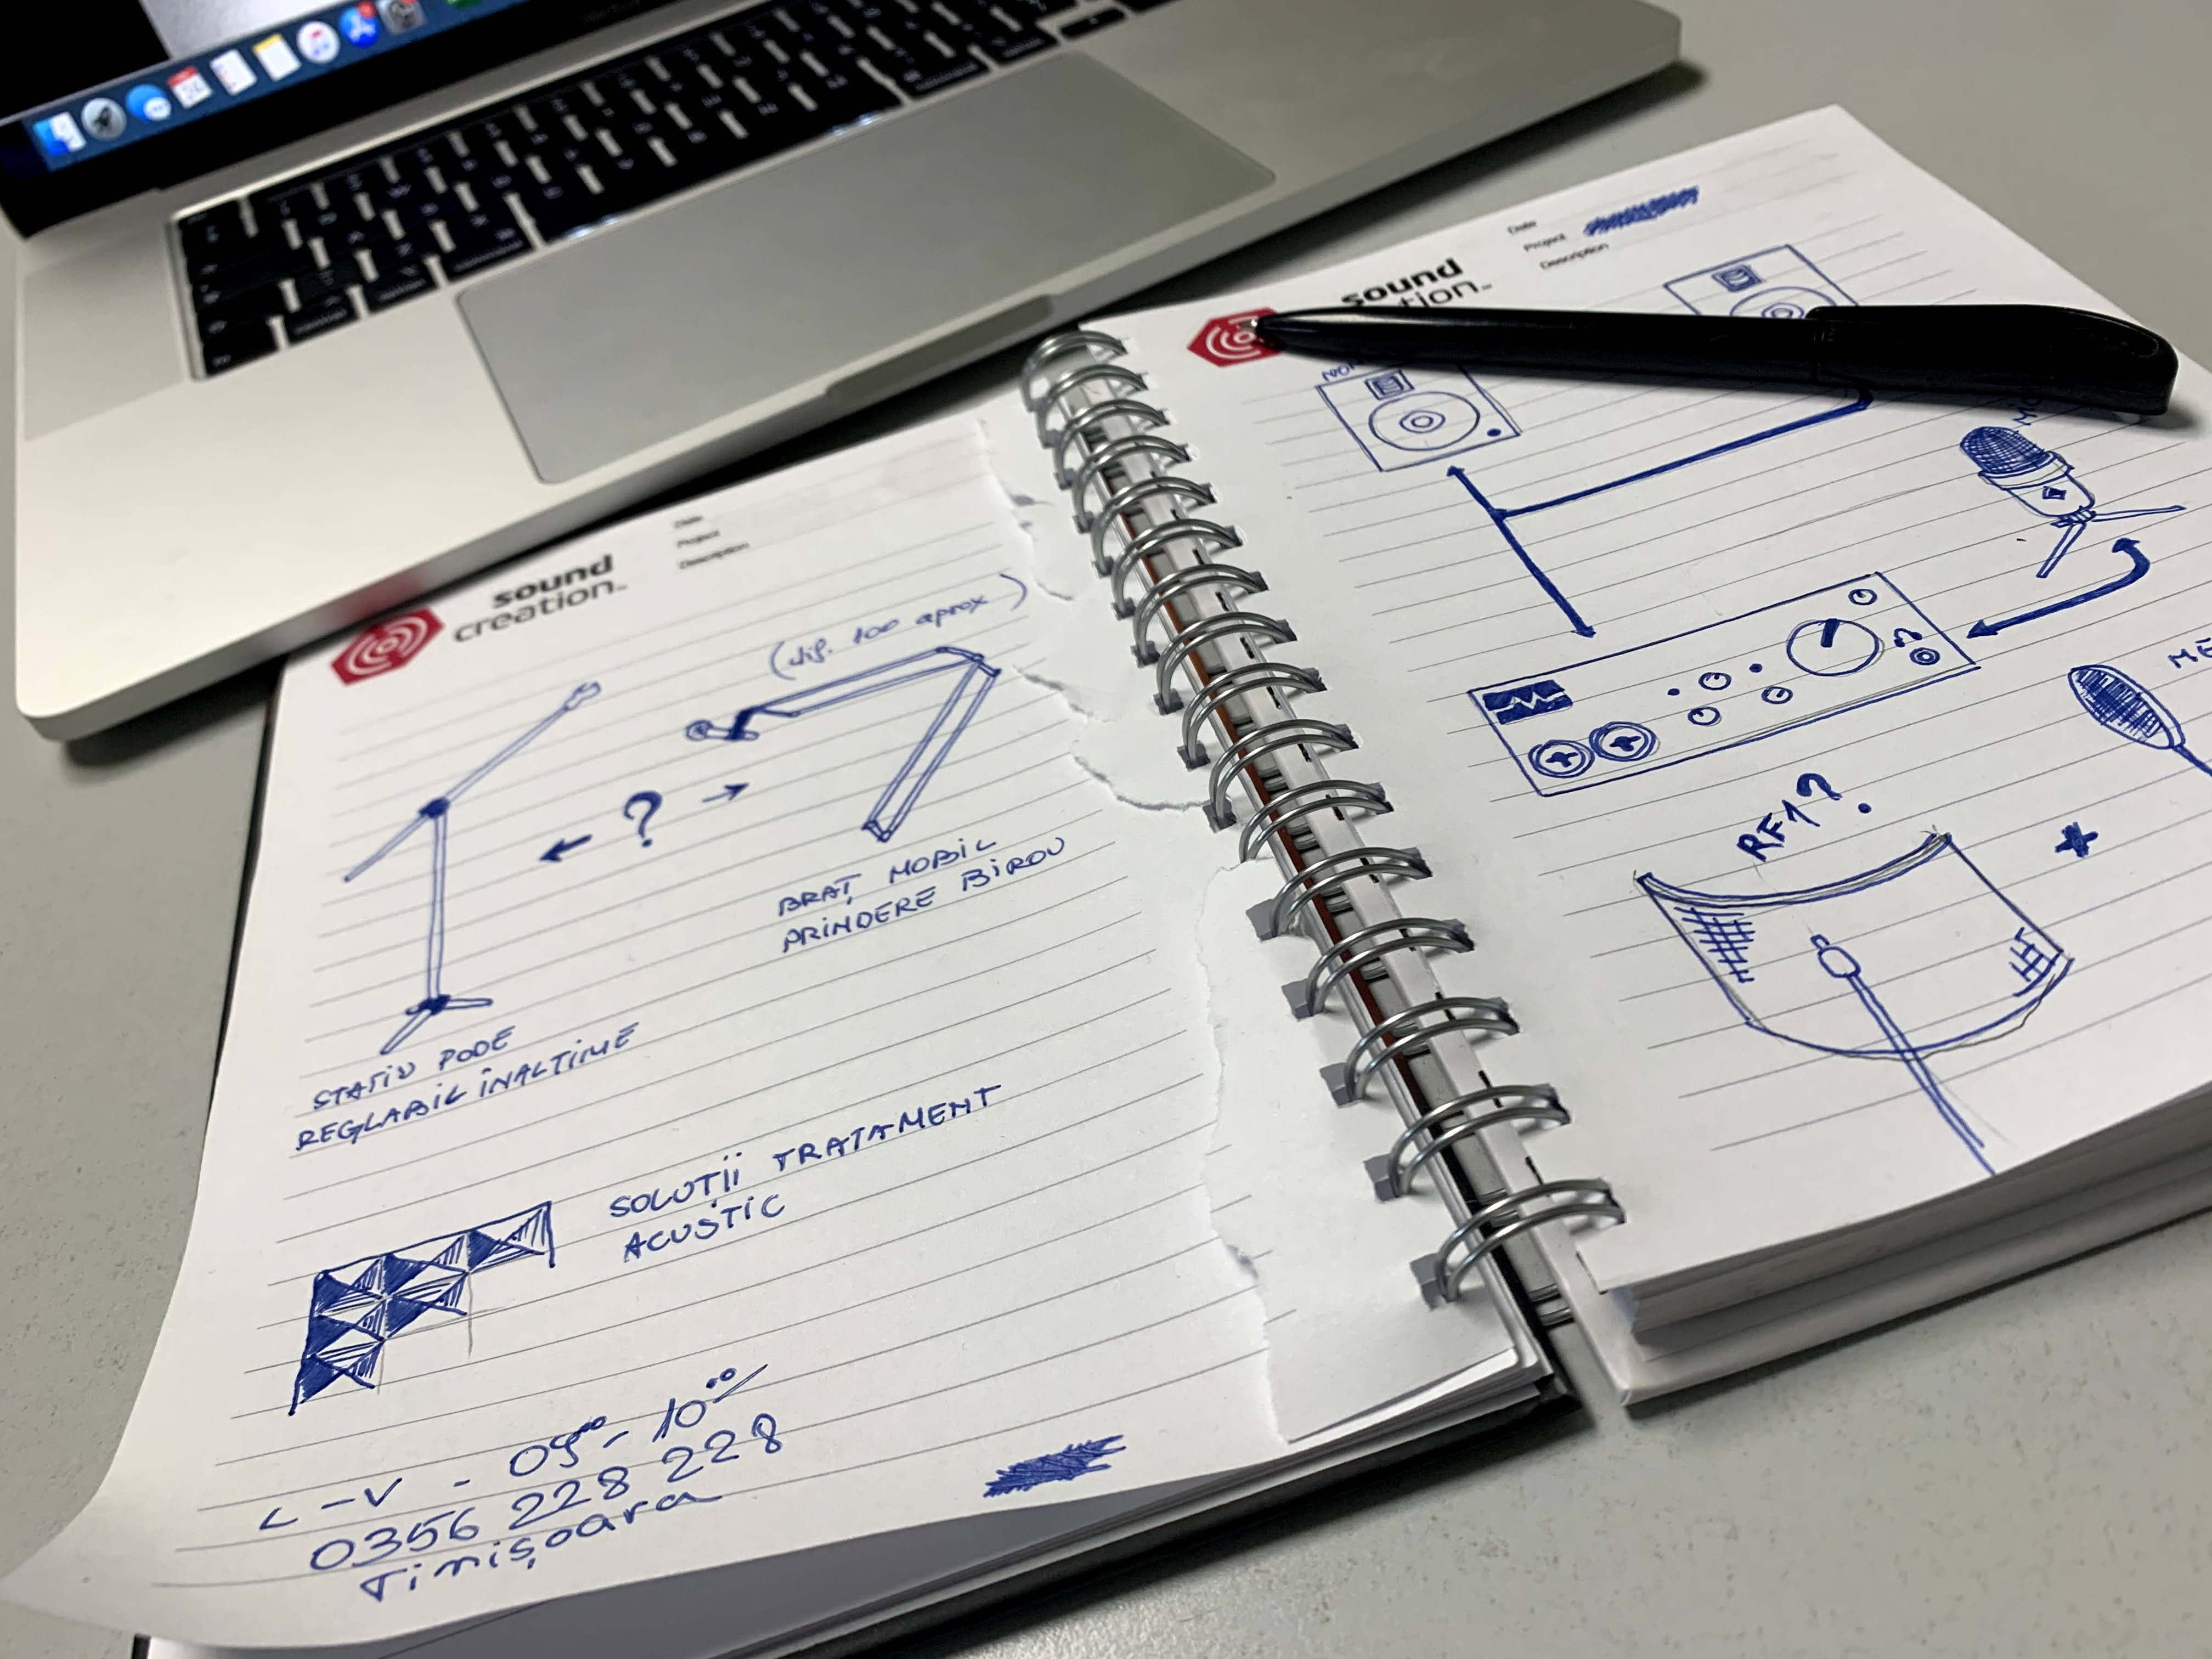 sound
creation
Date
Project
Description
(dif. 100 aprox)
?
BRAȚ MOBIL
PRINDERE BIROU
STATIV PODE
REGLABIL INALTIME
SOLUȚII TRATAMENT
ACUSTIC
L-V - 09⁰⁰ - 10⁰⁰
0356 228 228
Timișoara
sound
tion
Date
Project
Description
RF1?